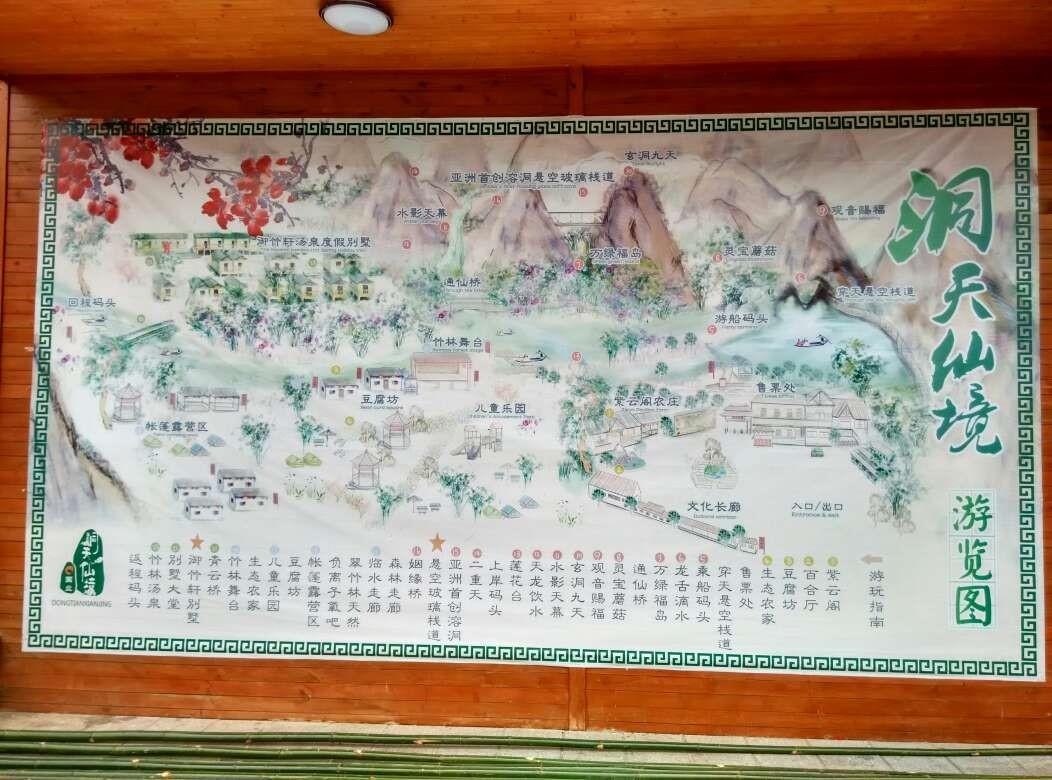 洞天仙境
游览图
玄洞九天
亚洲首创溶洞悬空玻璃栈道
水影天幕
观音赐福
御竹轩汤泉度假别墅
万绿福岛
灵宝蘑菇
通仙桥
穿天悬空栈道
回程码头
游船码头
竹林舞台
售票处
豆腐坊
儿童乐园
紫云阁农庄
帐篷露营区
文化长廊
入口/出口
Entrance & exit
游玩指南
紫云阁
百合厅
豆腐坊
生态农家
售票处
穿天悬空栈道
乘船码头
龙舌滴水
万绿福岛
通仙桥
灵宝蘑菇
观音赐福
玄洞九天
水影天幕
天龙饮水
莲花台
上岸码头
二重天
亚洲首创溶洞
悬空玻璃栈道
姻缘桥
森林走廊
临水走廊
翠竹林天然
负离子氧吧
帐篷露营区
豆腐坊
儿童乐园
生态农家
竹林舞台
青云桥
御竹轩别墅
别墅大堂
竹林汤泉
返程码头
DONGTIANXIANJING